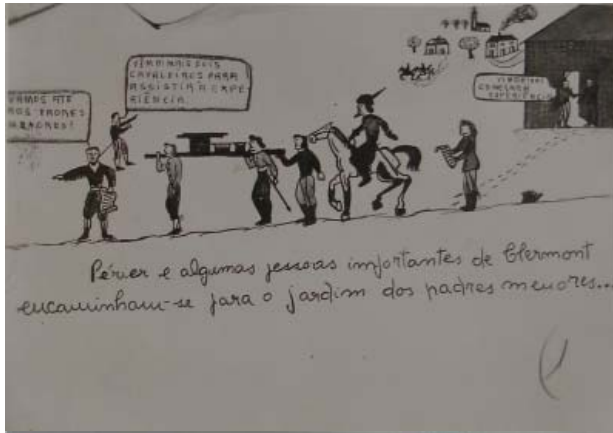 VAMOS ATÉ
AOS PADRES
MENORES!
VÊM AÍ MAIS DOIS
CAVALEIROS PARA
ASSISTIR À EXPE-
RIÊNCIA.
COMEÇAR A
EXPERIÊNCIA
Périer e algumas pessoas importantes de Clermont
encaminham-se para o jardim dos padres menores...